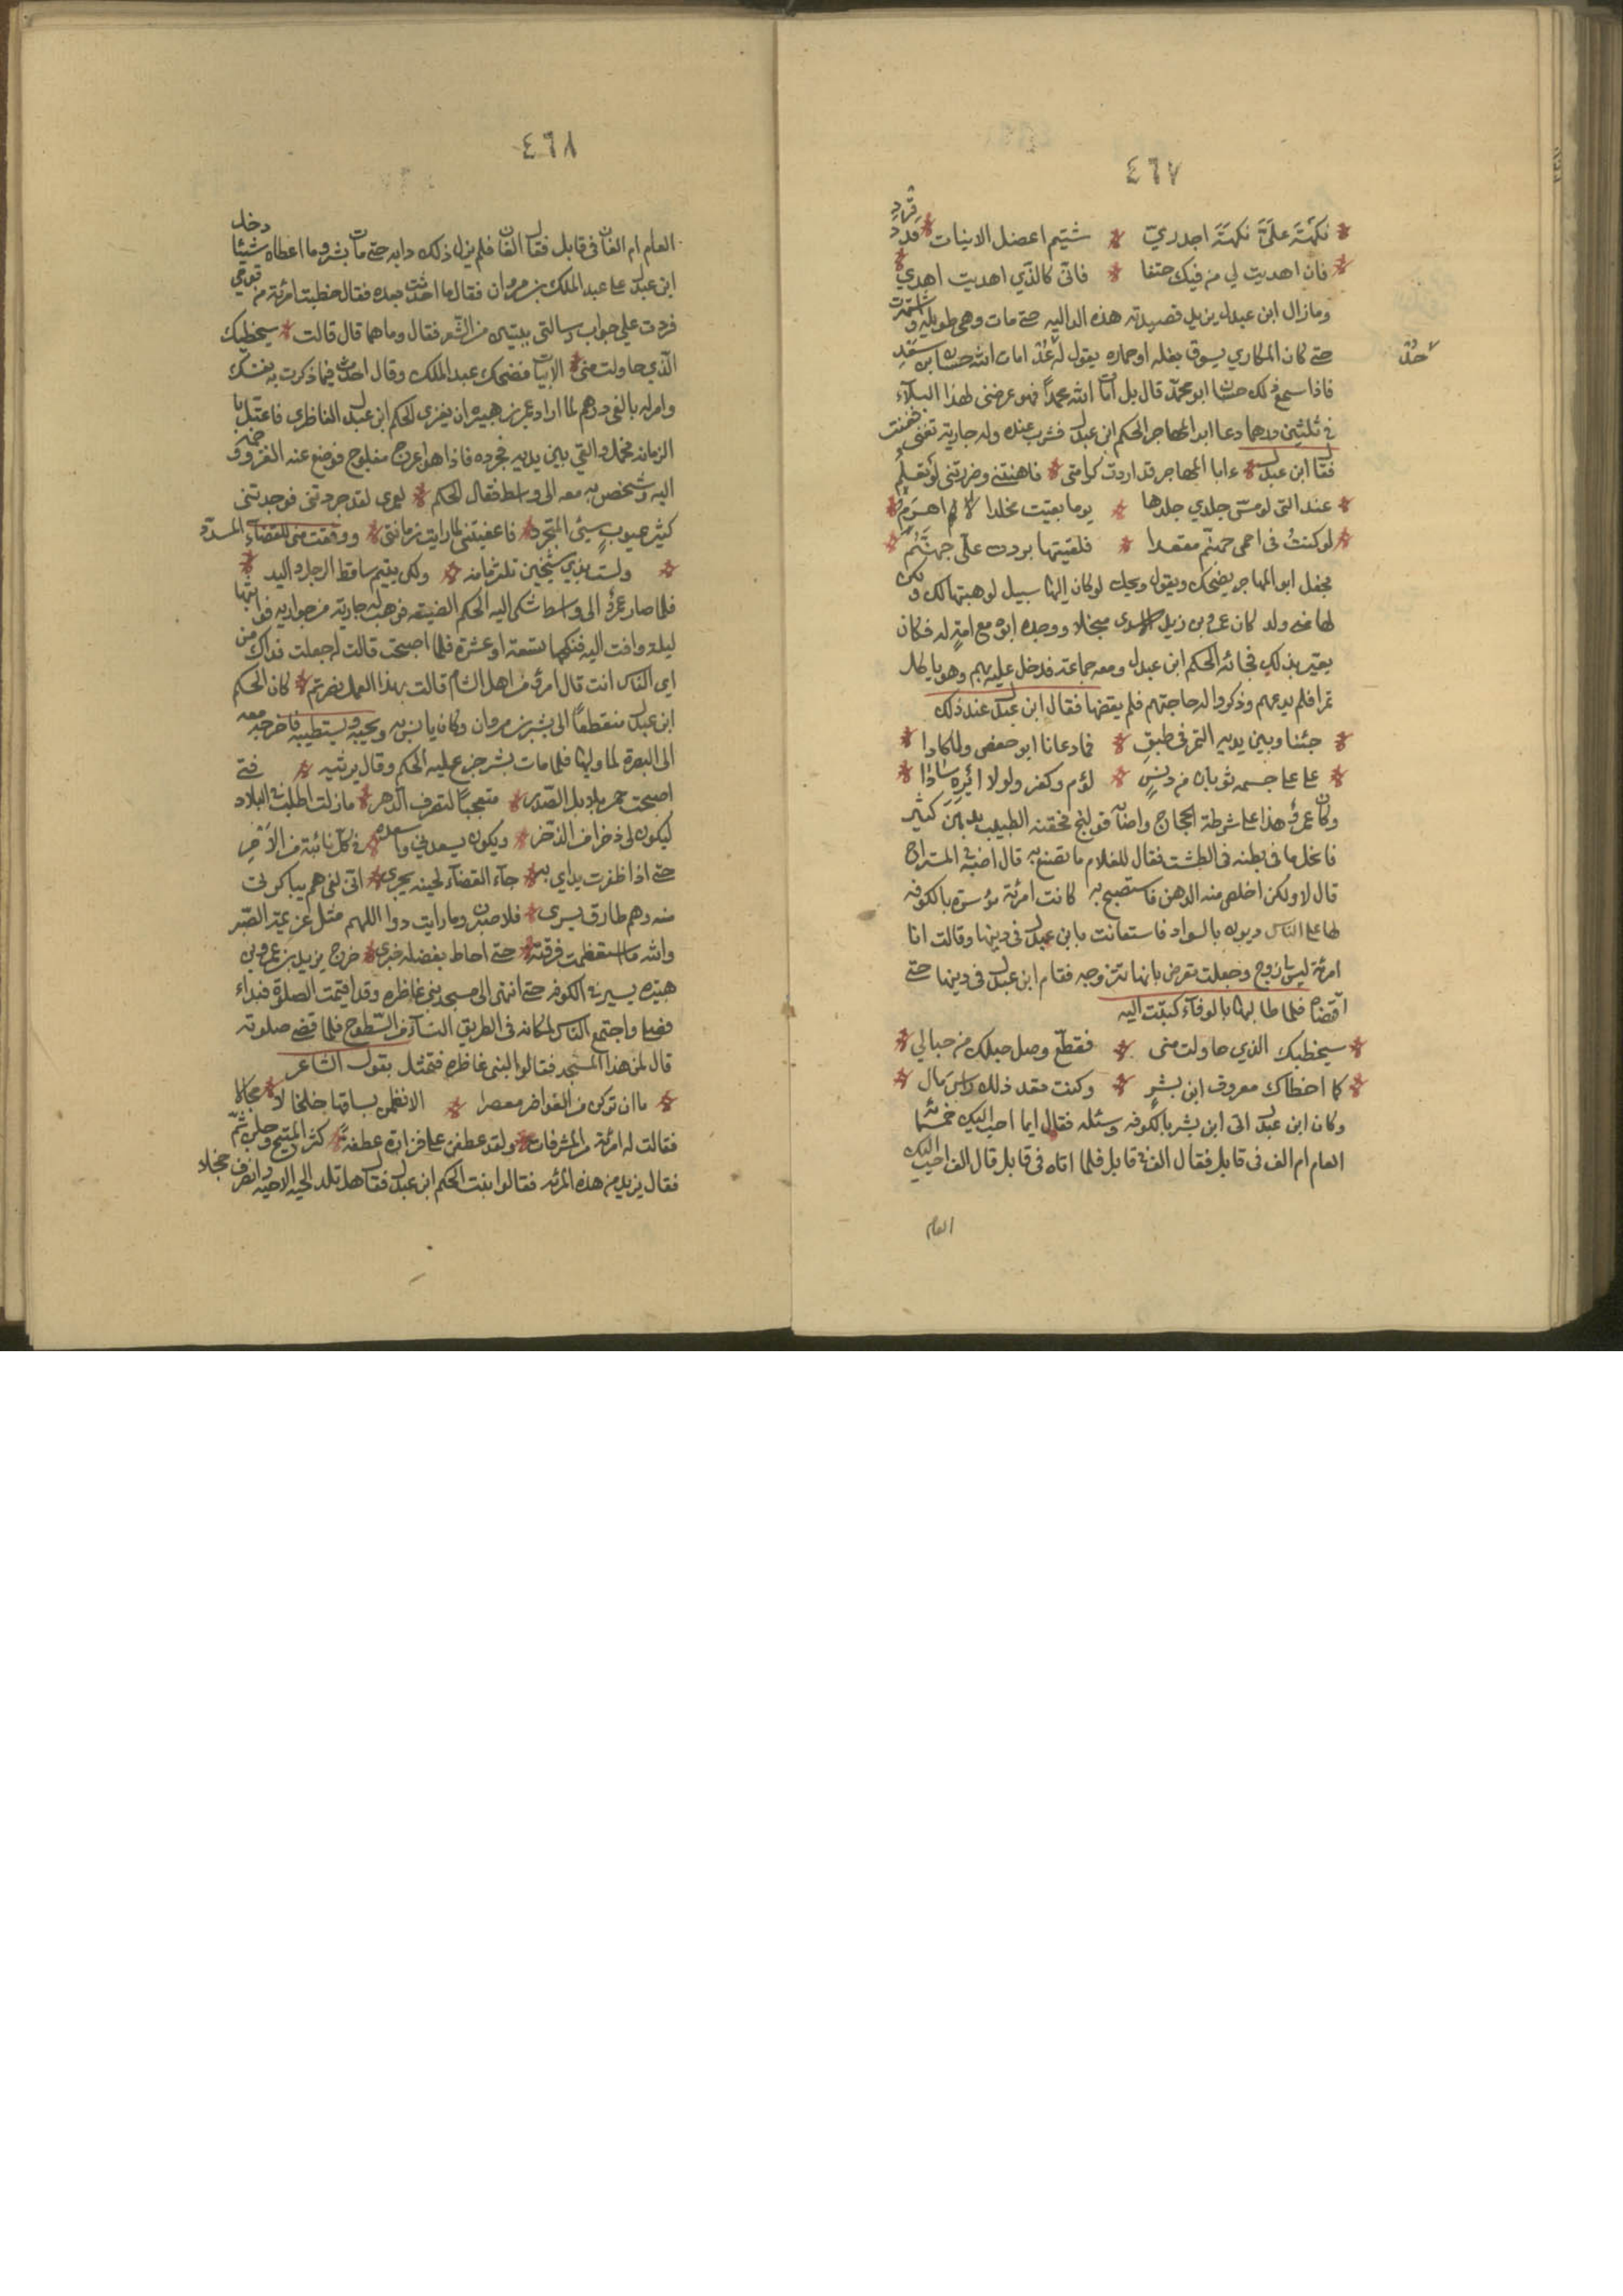 ٤٦٧
نكهت علي نكهة اجدري * شتيم اعضل الانيات قرد
فان اهديت لي من فيك حتفا * فاني كالذي اهديت اهدي
ومازال ابن عبدل يزيد قصيدته هذه الداليه حتى مات وهي طويله واشتهرت
حتى كان المكاري يسوق بغله او حماره يقول له عد امات الله حسان ابن سعد
فاذا سمع ذلك حسان ابو محمد قال بل امات الله محمدا فهو عرضني لهذا البلاء
في ثلثين درهما دعا ابو المهاجر الحكم ابن عبدل فشرب عنده وله جارية تغني فغنت
فقال ابن عبدل * ءابا المهاجر قد اردت كرامتي * فاهنتني وضررتني لو تعلم
عند التي لو مس جلدي جلدها * يوما بقيت مخلدا لا اهرم
لو كنت في احمى جهنم مقعدا * فلقيتها بردت علي جهنم
فجعل ابو المهاجر يضحك ويقول ويحك لو كان اليها سبيل لوهبتها لك ولكن
لها مني ولد كان عمرو بن زيد الاسدي مبخلا ووجده ابوه مع امة له فكان
يعير بذلك فجائه الحكم ابن عبدل ومعه جماعة فدخل عليه بهم وهو ياكل
تمرا فلم يدعهم وذكروا له حاجتهم فلم يقضها فقال ابن عبدل عند ذلك
جئنا وبين يديه التمر في طبق * فما دعانا ابو حفص ولا كادا
علا على جسمه ثوبان من دنس * لؤم وكفر ولولا ايره سادا
وكان عمرو هذا على شرطة الحجاج واصابه قولنج فحقنه الطبيب بدهن كثير
فانحل ما في بطنه في الطشت فقال للغلام ما تصنع به قال اصبه في المستراح
قال لا ولكن اخلص منه الدهن فاستصبح به كانت امرئة موسرة بالكوفه
لها على الناس ديون بالسواد فاستعانت بابن عبدل في دينها وقالت انا
امرئة ليس لي زوج وجعلت تعرض بانها تتزوجه فقام ابن عبدل في دينها حتى
اقتضاه فلما طالبها بالوفاء كتبت اليه
سيخطيك الذي حاولت مني * فقطع وصل حبلك من حبالي
كما اخطاك معروف ابن بشر * وكنت تعد ذلك راس مال
وكان ابن عبدل اتى ابن بشر بالكوفه وسئله فقال ايما احب اليك خمسمائة
العام ام الف في قابل فقال الف في قابل فلما اتاه في قابل قال الف احب اليك
العام
٤٦٨
العام ام الفان في قابل فقال الفان فلم يزل ذلك دابه حتى مات بشر وما اعطاه شيئا دخل
ابن عبدل على عبد الملك بن مروان فقال ما احدثت بعده فقال خطبت امرئة من قومي
فردت علي جواب رسالتي ببيتين من الشعر فقال وما هما قال قالت * سيخطيك
الذي حاولت مني * الابيات فضحك عبد الملك وقال احدث فيما ذكرت به نفسك
وامر له بالفي درهم لما اراد عمر بن هبيره ان يغزي الحكم ابن عبدل الغاظري فاعتل با
الزمانه فحمل والقي بين يديه فجرده فاذا هو اعرج مفلوج فوضع عنه الغزو وضمه
اليه وشخص به معه الى واسط فقال الحكم * لعمري لقد جردتني فوجدتني
كثير عيوب سيئ المتجرد * فاعفيتني لما رايت زمانتي * ووفقت مني للقضاء المسدد
ولست بذي شيخين تلتزمانه * ولكن يتيم ساقط الرجل واليد
فلما صار عمرو الى واسط شكى اليه الحكم الضيقه فوهب له جارية من جواريه فواثبها
ليلة وافت اليه فنكحها تسعة او عشرة فلما اصبحت قالت له جعلت فداك من
اي الناس انت قال امرؤ من اهل الشام قالت بهذا العمل نصرتم * كان الحكم
ابن عبدل منقطعا الى بشر بن مروان وكان يانس به ويحبه ويستطيبه فاخرجه معه
الى البصرة لما وليها فلما مات بشر جزع عليه الحكم وقال يرثيه *
اصبحت جم بلابل الصدر * متعجبا لتصرف الدهر * مازلت اطلب في البلاد فتى
ليكون لي ذخرا من الذخر * ويكون يسعدني واسعده في كل نائبة من الامر
حتى اذا ظفرت يداي به * جاء القضاء لحينه يجري * اني لفي هم يباكرني
منه وهم طارق يسري * فلاصبرن وما رايت دوا اللهم مثل عزيمة الصبر
والله ما استعظمت فرقته * حتى احاط بفضله خبري * خرج يزيد بن عمرو بن
هبيره يسير في الكوفه حتى انتهى الى مسجد بني غاظره وقد اقيمت الصلوة فنزل
فصلى واجتمع الناس لمكانه في الطريق النساء من السطوح فلما قضى صلوته
قال لمن هذا المسجد فقالوا لبني غاظره فتمثل بقول الشاعر
ما ان تركن من الغواضر معصرا * الا فظمن بساقها خلخالا
فقالت له امرئة من المشرفات * ولقد عطفن على فزارة عطفة * كثر المنيح وجلن ثم مجالا
فقال يزيد من هذه المرئة فقالوا بنت الحكم ابن عبدل فقال هل تلد الحية الا حيه وانصرف خجلا